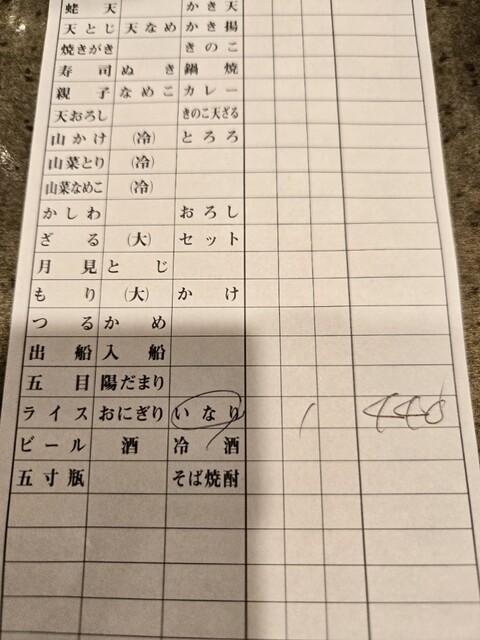 蛯天 かき天
天とじ 天なめ かき揚
焼きがき きのこ
寿司 ぬき 鍋焼
親子 なめこ カレー
天おろし きのこ天ざる
山かけ (冷) とろろ
山菜とり (冷)
山菜なめこ (冷)
かしわ おろし
ざる (大) セット
月見 とじ
もり (大) かけ
つる かめ
出船 入船
五目 陽だまり
ライス おにぎり いなり 1 440
ビール 酒 冷酒
五寸瓶 そば焼酎